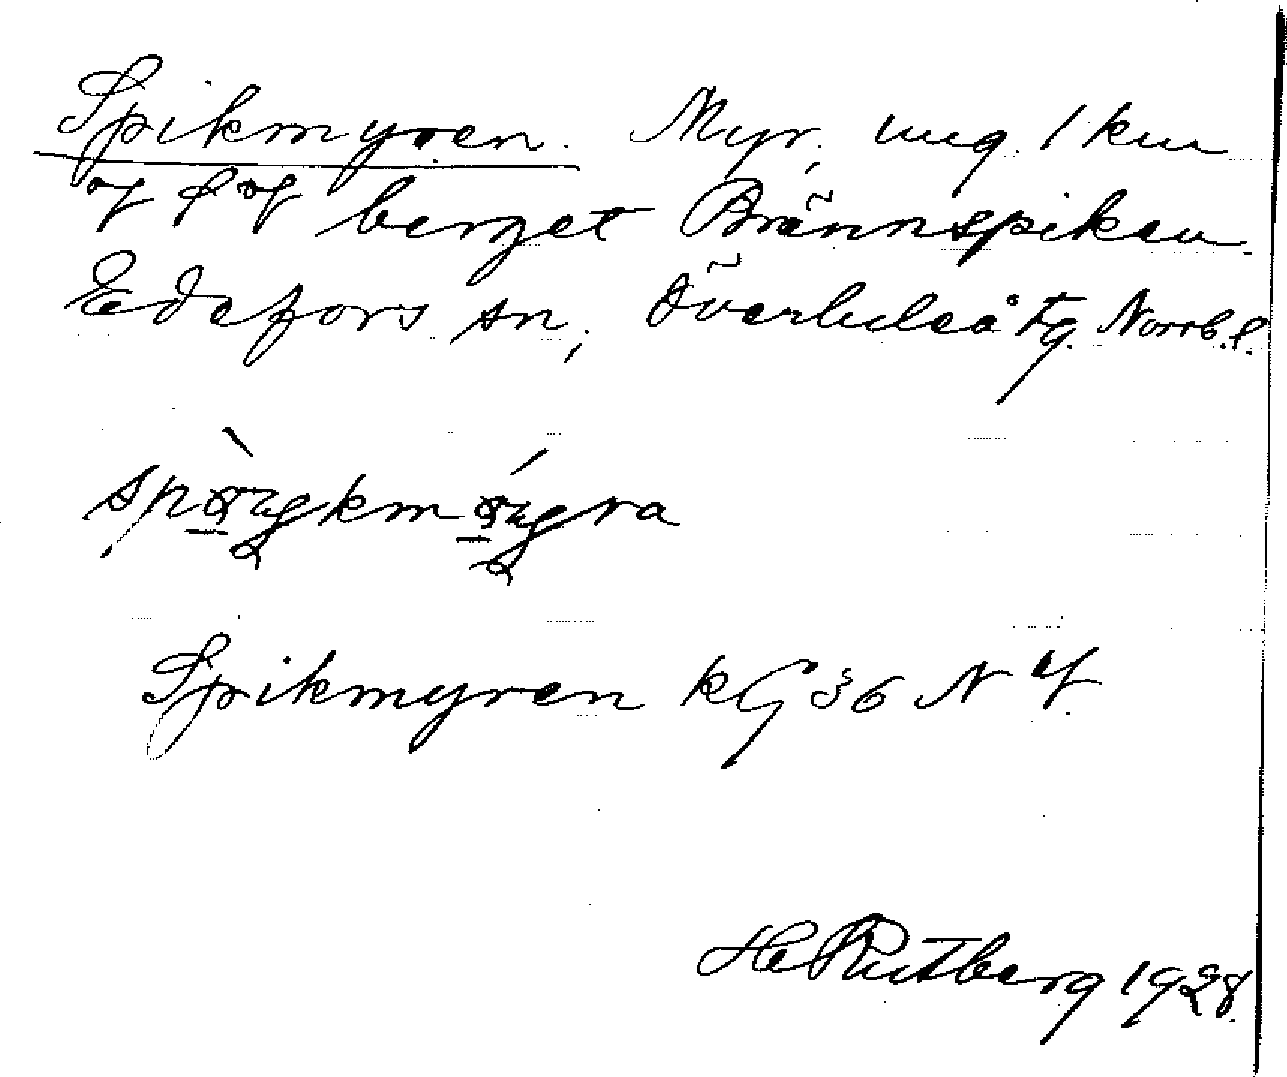 Spikmyren. Myr, ung. 1 km
berget Brännspiken
Edefors sn, Överluleå tg. Norrb.l.
Spikmyren kG 36 N
H Rutberg 1928.